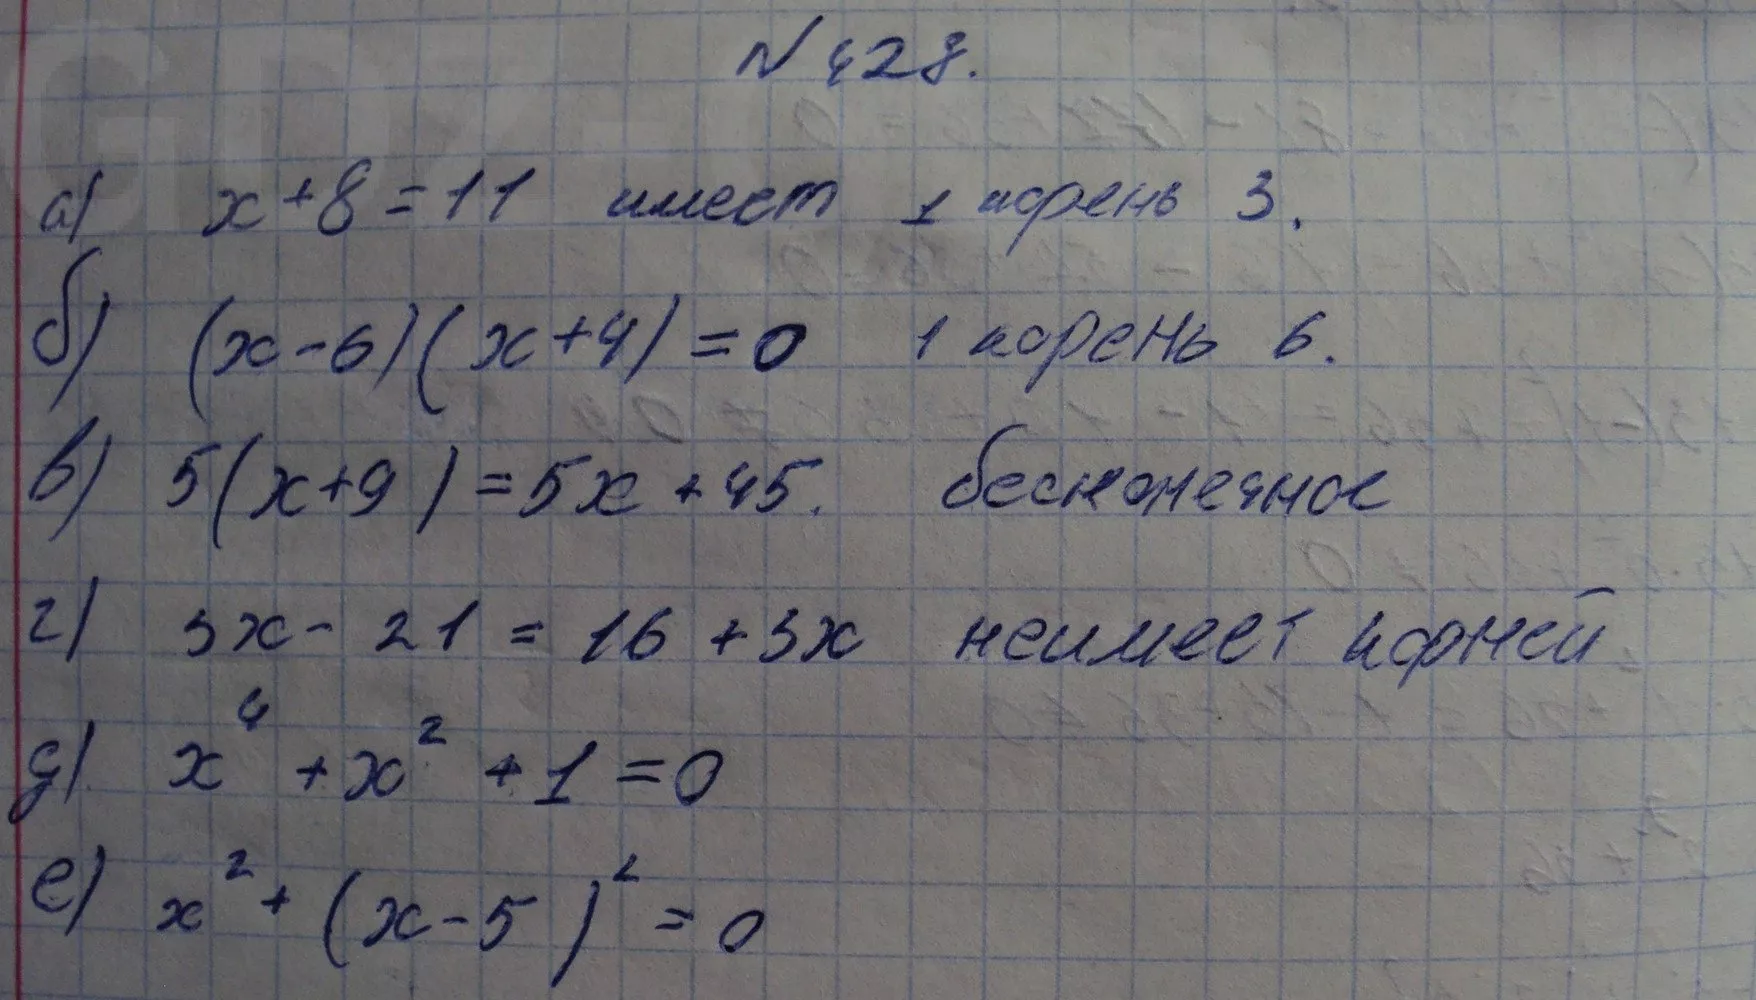 № 428.
а) x + 8 = 11 имеет 1 корень 3.
б) (x - 6)(x + 4) = 0 1 корень 6.
в) 5(x + 9) = 5x + 45. бесконечное
г) 3x - 21 = 16 + 3x неимеет корней
д) x⁴ + x² + 1 = 0
е) x² + (x - 5)² = 0